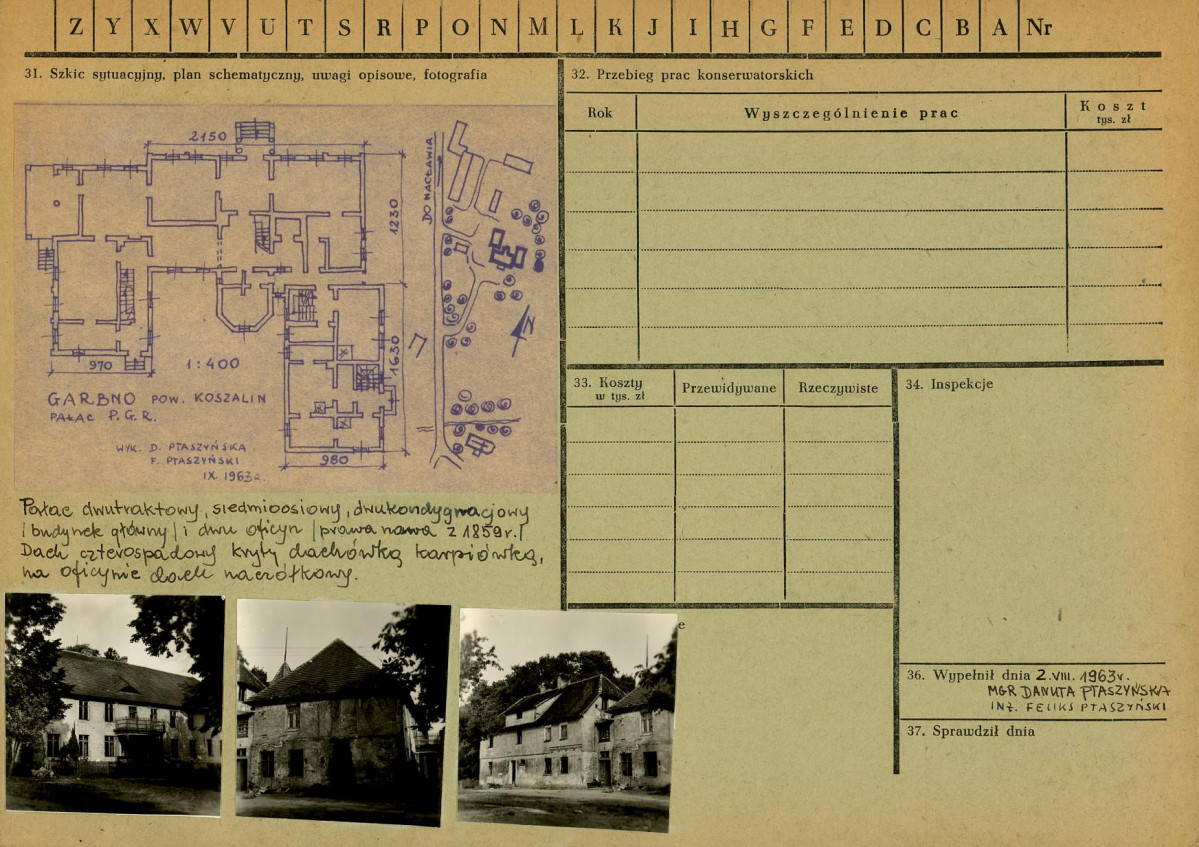 Z Y X W V U T S R P O N M L K J I H G F E D C B A Nr
31. Szkic sytuacyjny, plan schematyczny, uwagi opisowe, fotografia
2150
1230
1630
970
980
1:400
GARBNO POW. KOSZALIN
PAŁAC P.G.R.
WYK. D. PTASZYŃSKA
F. PTASZYŃSKI
IX. 1963r.
DO NACŁAWIA
N
Pałac dwutraktowy, siedmioosiowy, dwukondygnacjowy
/budynek główny/ i dwu oficyn /prawa nowa z 1859r./
Dach czterospadowy kryty dachówką karpiówką,
na oficynie dach naczółkowy.
32. Przebieg prac konserwatorskich
Rok
Wyszczególnienie prac
Koszt
tys. zł
33. Koszty
w tys. zł
Przewidywane
Rzeczywiste
34. Inspekcje
e
36. Wypełnił dnia 2.VIII.1963r.
MGR DANUTA PTASZYŃSKA
INŻ. FELIKS PTASZYŃSKI
37. Sprawdził dnia